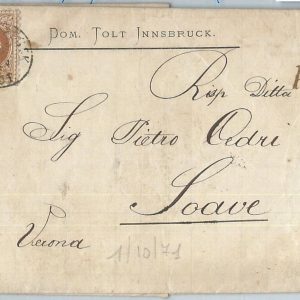 DOM. TOLT INNSBRUCK.
Risp Ditta
Sig Pietro Cedri
Soave
Verona
1/10/71